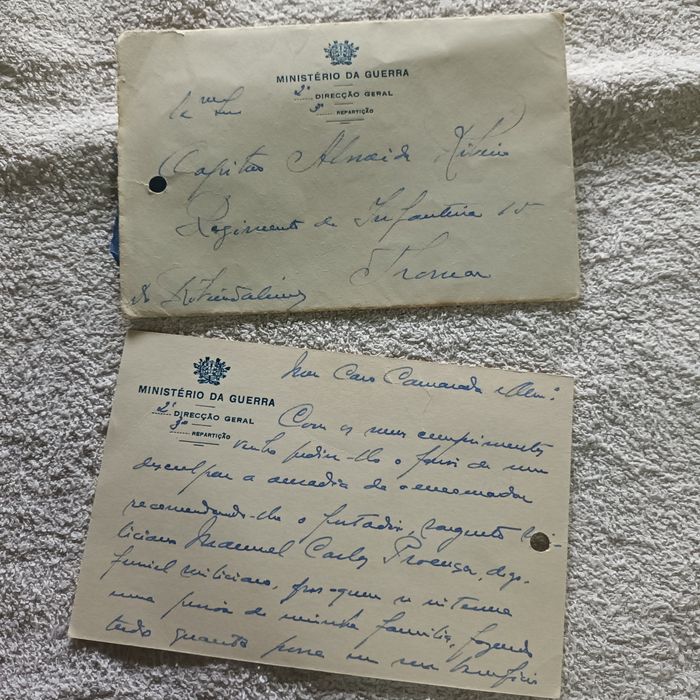 MINISTÉRIO DA GUERRA
2ª DIRECÇÃO GERAL
3ª REPARTIÇÃO
Capitão Almeida Ribeiro
Regimento de Infanteria 15
Thomar
MINISTÉRIO DA GUERRA
2ª DIRECÇÃO GERAL
3ª REPARTIÇÃO
Meu Caro Camarada e Am.º
Com os meus cumprimentos
venho pedir-lhe o favor de me
desculpar a ousadia de o encomodar
recomendando-lhe o portador, sargento mi-
liciano Manuel Carlos Proença, digo,
furriel miliciano, por quem se interessa
uma pessoa de minha familia, fazendo
tudo quanto possa em seu beneficio